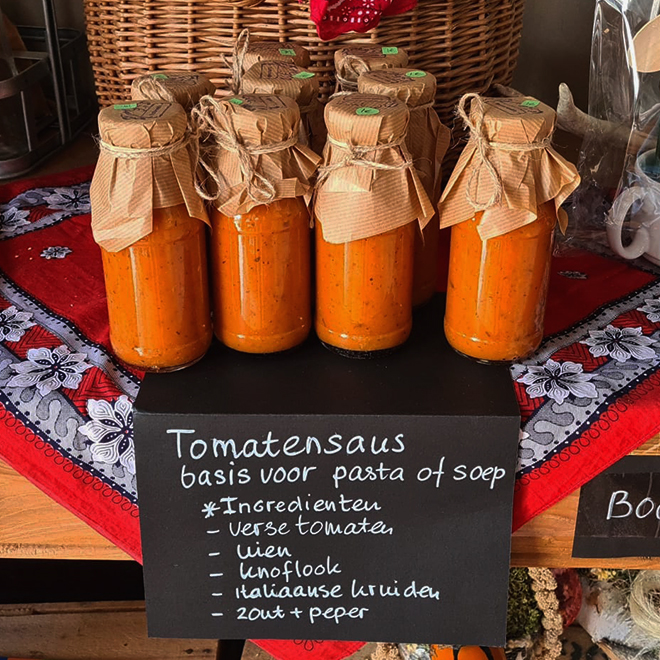 Tomatensaus
basis voor pasta of soep
*Ingredienten
- verse tomaten
- uien
- knoflook
- italiaanse kruiden
- zout + peper
Boo